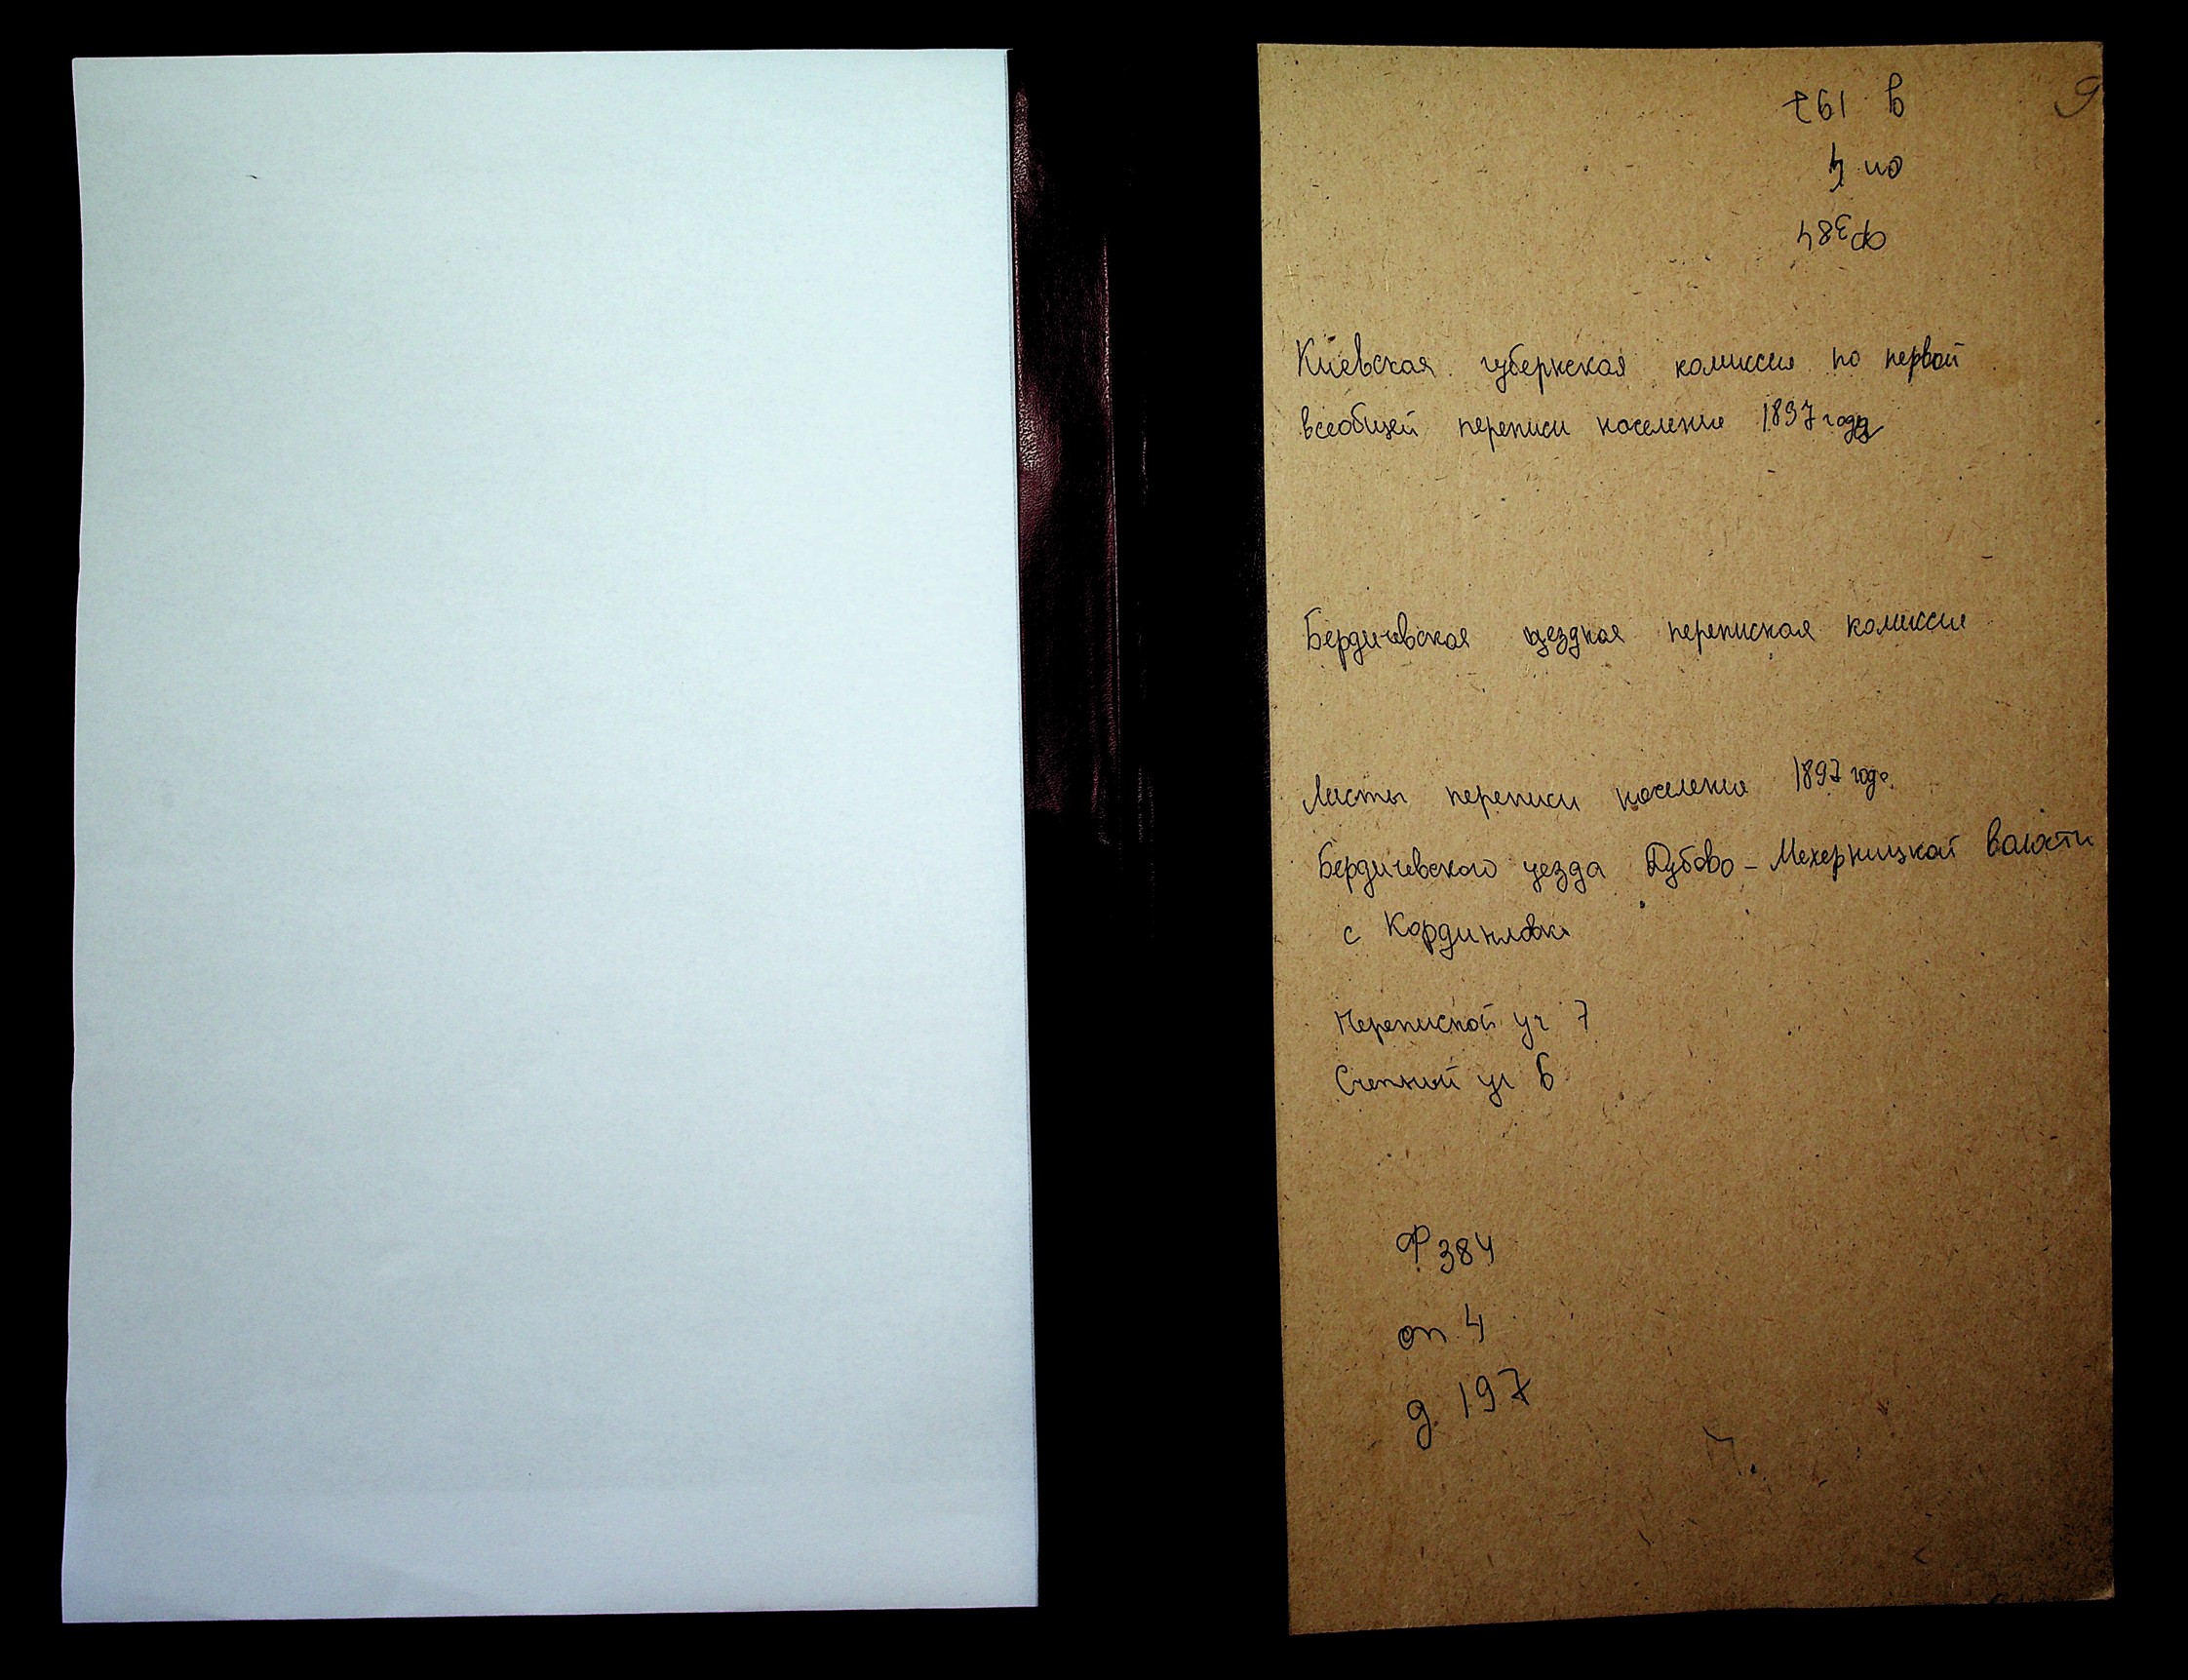 д 197
оп 4
Ф 384
Киевская губернская комиссия по первой
всеобщей переписи населения 1897 года
Бердичевская уездная переписная комиссия
Листы переписи населения 1897 года
Бердичевского уезда Дубово-Мехерницкой волости
с Кординловка
Переписной уч 7
Счетный уч 6
Ф 384
оп 4
д 197